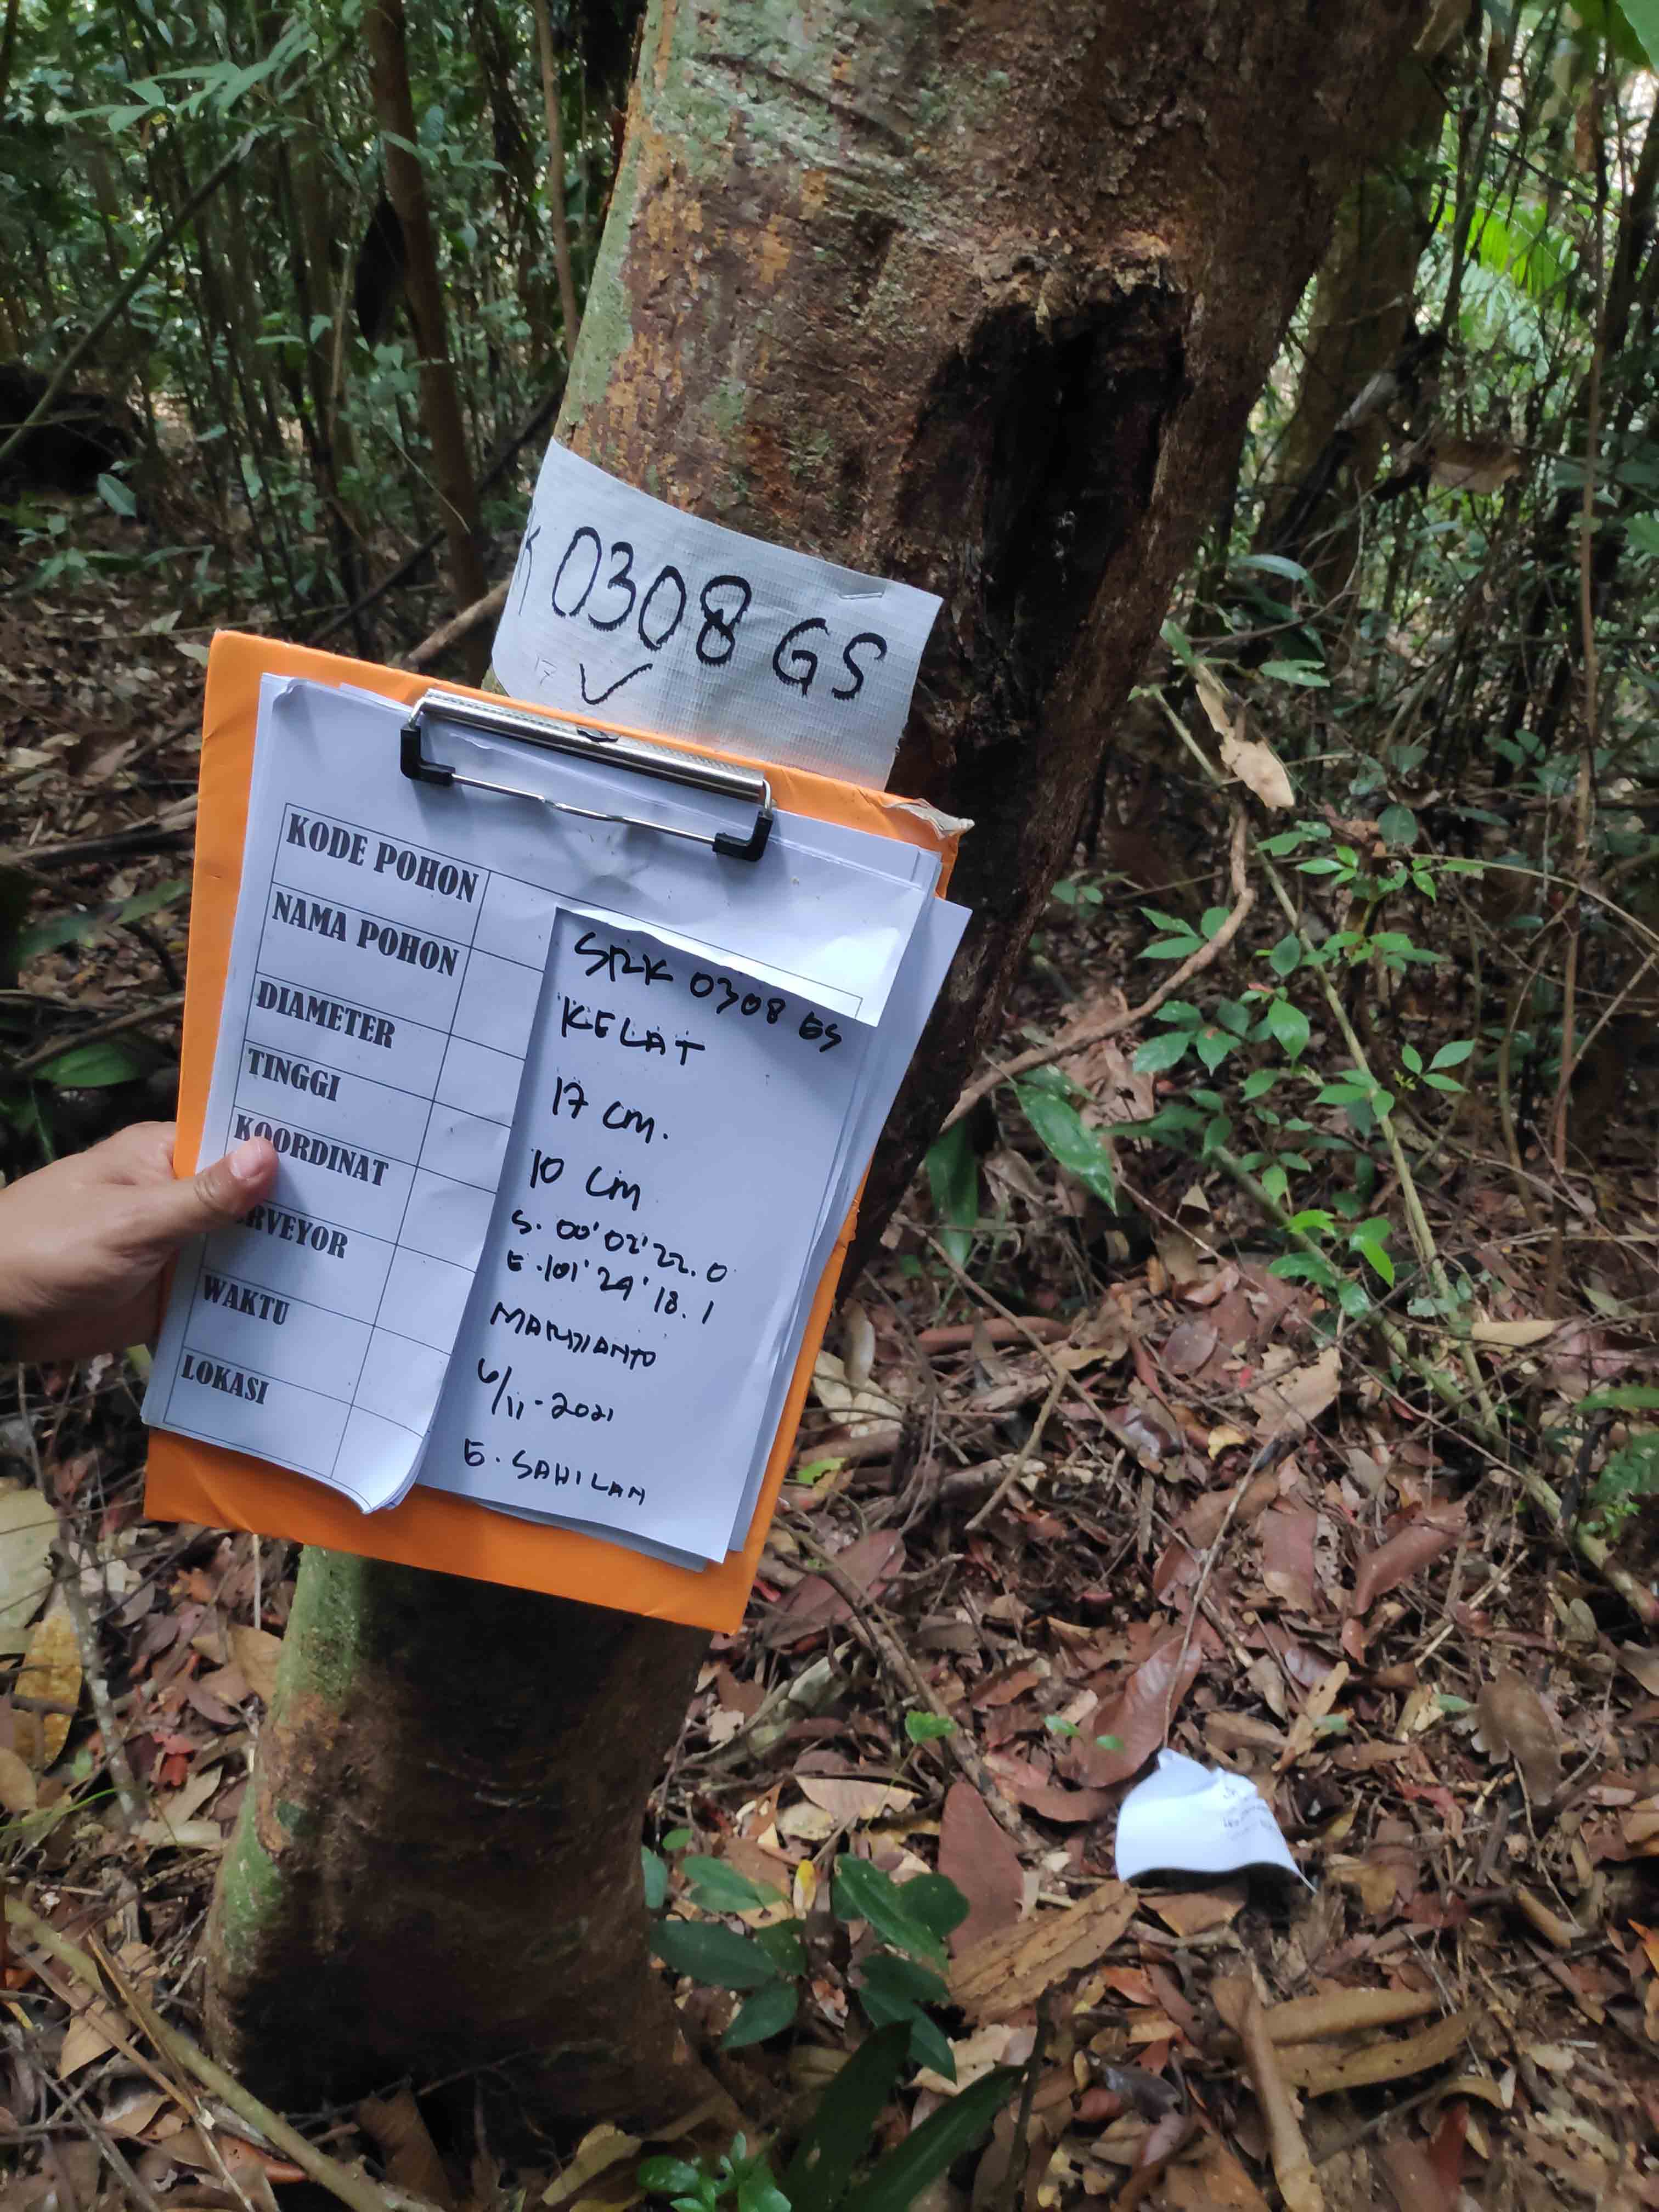 K 0308 GS
KODE POHON SRK 0308 GS
NAMA POHON KELAT
DIAMETER 17 cm.
TINGGI 10 cm
KOORDINAT S. 00' 02' 22. 0
E. 101' 24' 18. 1
RVEYOR MARDIANTO
WAKTU 6/11-2021
LOKASI G. SAHILAN